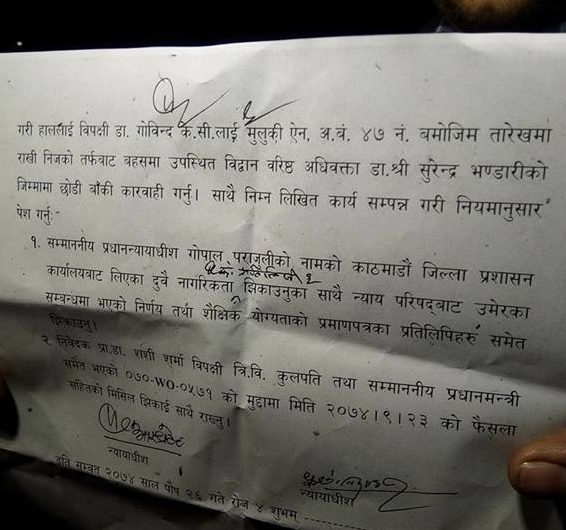 गरी हाललाई विपक्षी डा. गोविन्द के.सी.लाई मुलुकी ऐन, अ.बं. ४७ नं. बमोजिम तारेखमा
राखी निजको तर्फवाट वहसमा उपस्थित विद्वान वरिष्ठ अधिवक्ता डा.श्री सुरेन्द्र भण्डारीको
जिम्मामा छोडी वाँकी कारवाही गर्नु। साथै निम्न लिखित कार्य सम्पन्न गरी नियमानुसार
पेश गर्नुः-
१. सम्माननीय प्रधानन्यायाधीश गोपाल पराजुलीको नामको काठमाडौं जिल्ला प्रशासन
कार्यालयबाट लिएका दुवै नागरिकता झिकाउनुका साथै न्याय परिषद्बाट उमेरका
सम्वन्धमा भएको निर्णय तथा शैक्षिक योग्यताको प्रमाणपत्रका प्रतिलिपिहरु समेत
झिकाउनु।
२. निवेदक प्रा.डा. शशी शर्मा विपक्षी त्रि.वि. कुलपति तथा सम्माननीय प्रधानमन्त्री
समेत भएको ०७०-WO-०५७१ को मुद्दामा मिति २०७४।९।२३ को फैसला
सहितको मिसिल झिकाई साथै राख्नु।
न्यायाधीश
न्यायाधीश
इति सम्वत २०७४ साल पौष २६ गते रोज ४ शुभम्